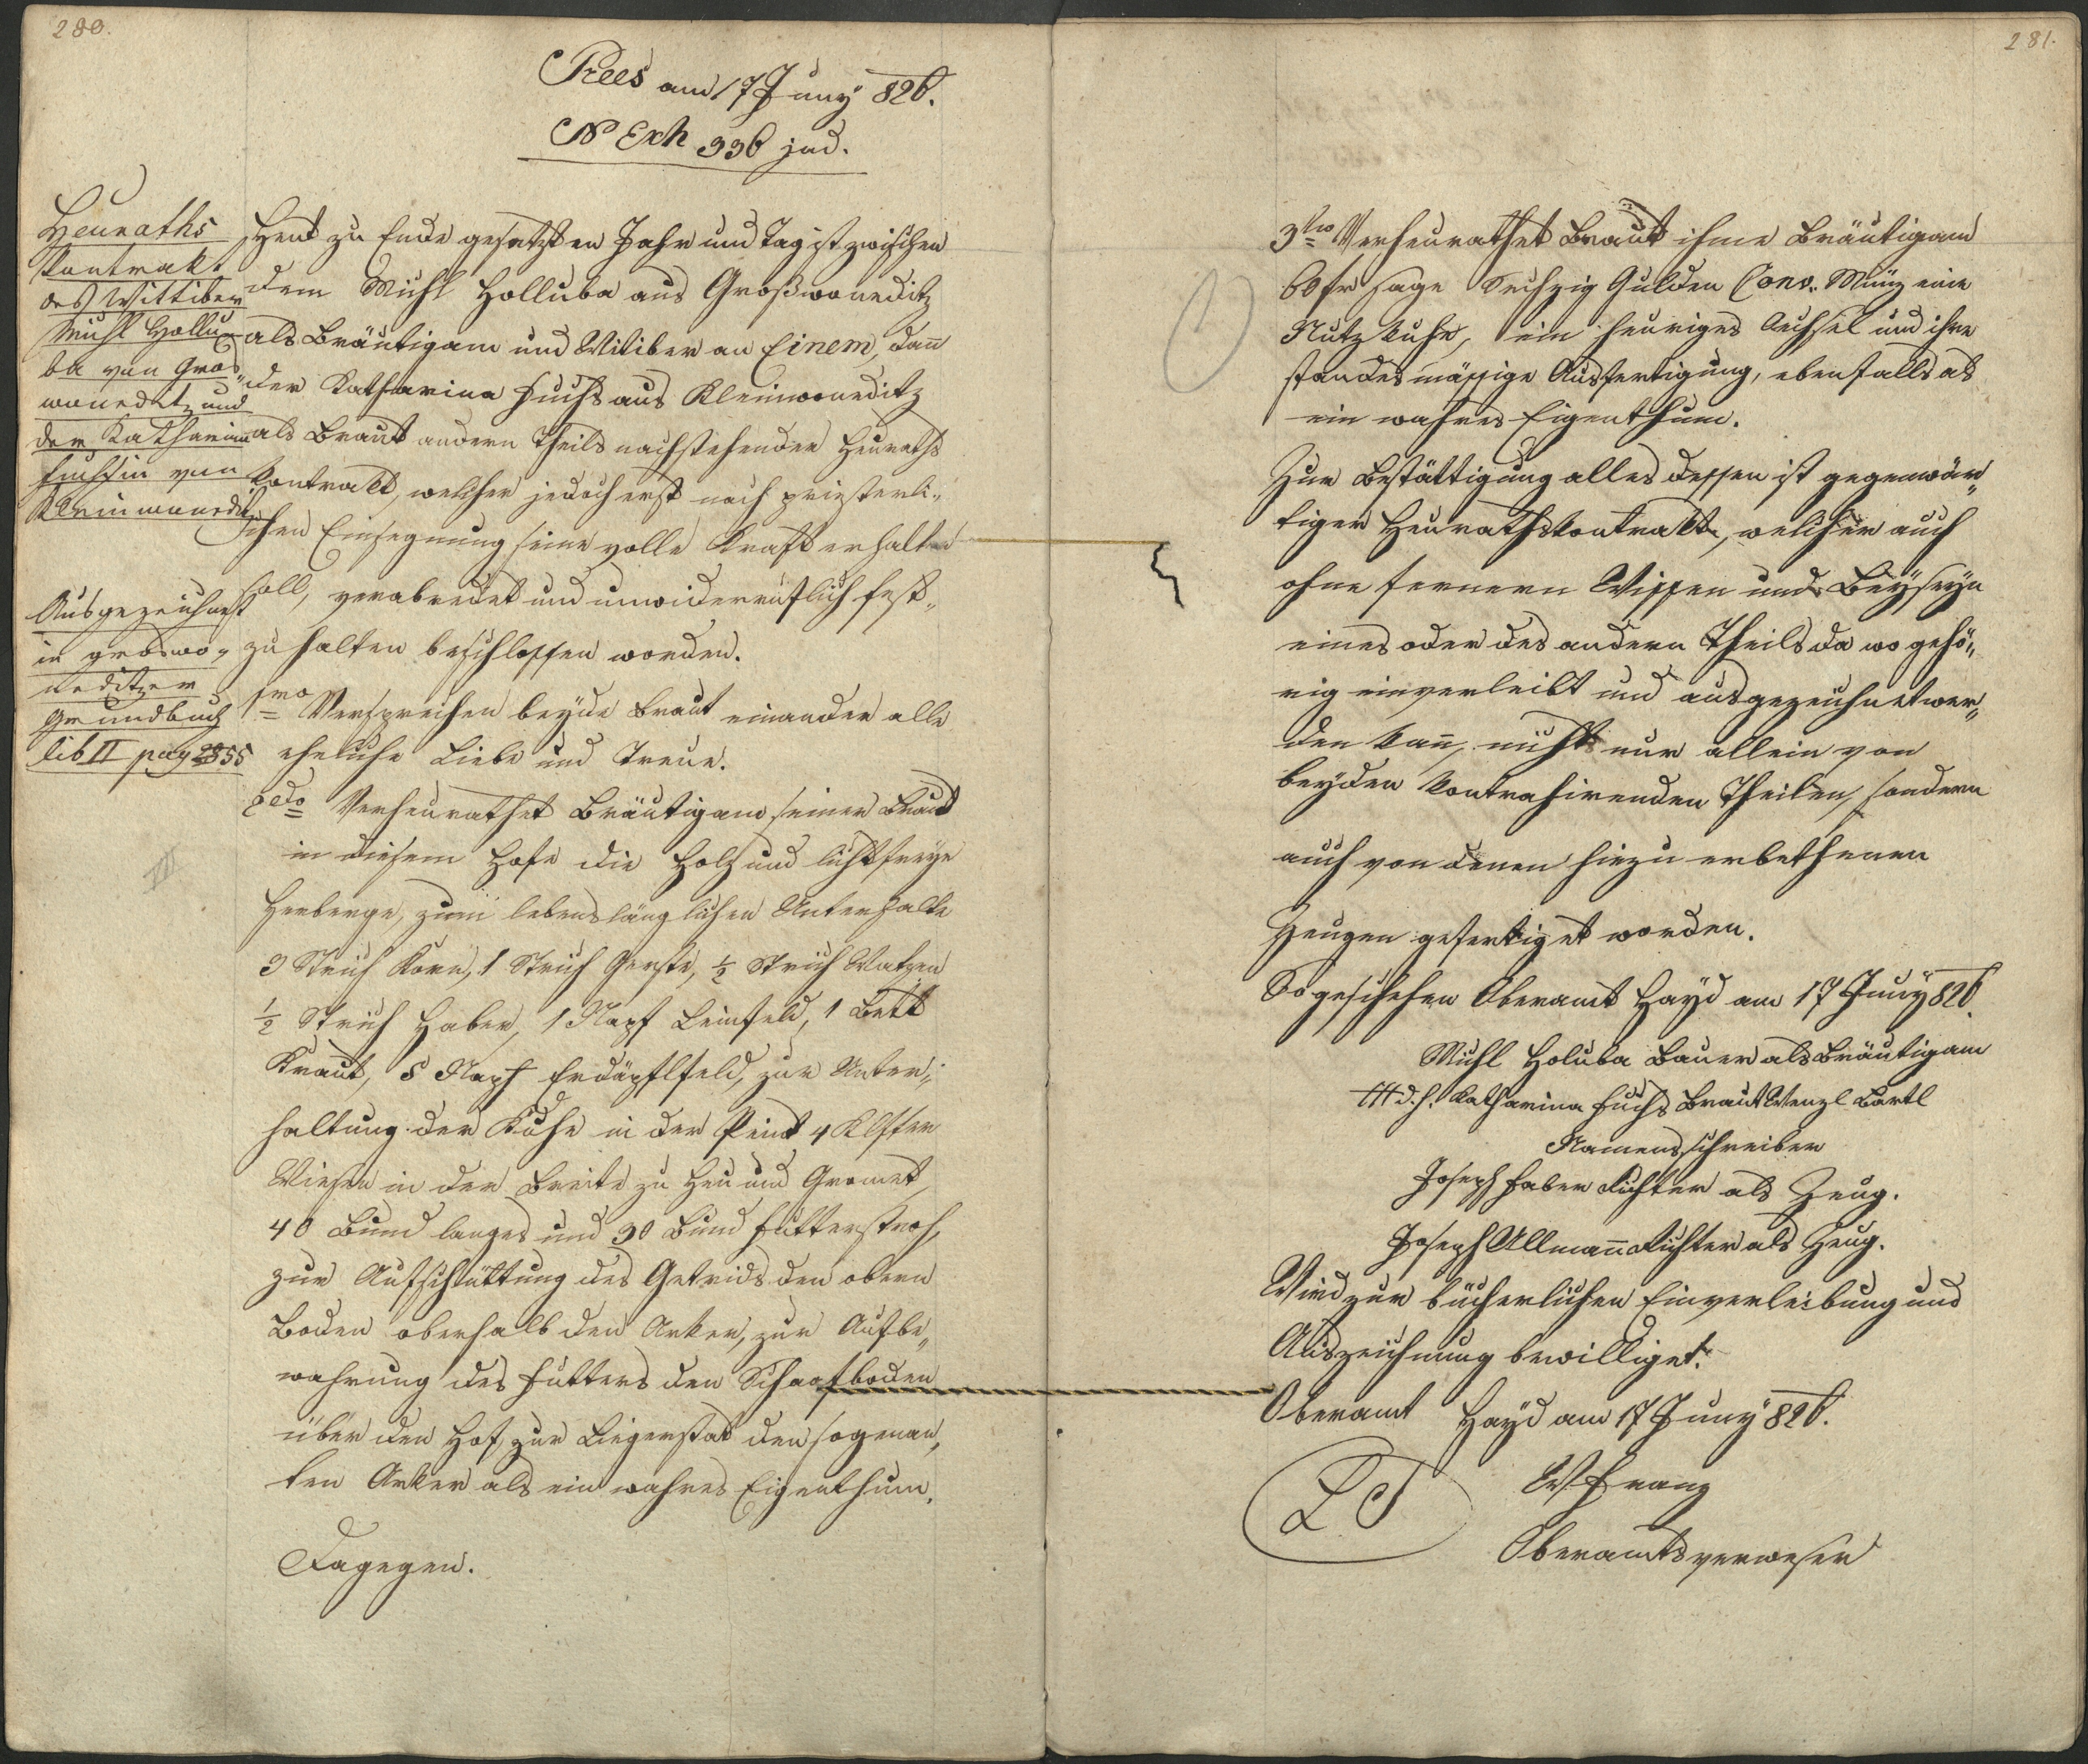 280.
Prees am 17 Juny 826.
N Exh 336 jud.
Heuraths
Kontrakt
des Wittiber
Michl Hollu-
ba von Gros
wonedetz und
der Katharina
Fuchsin von
Kleinwoneditz
Ausgezeichnet
in groswo-
neditzer
Grundbuch
lib II pag 55
Heut zu Ende gesetzten Jahr und Tag ist zwischen
dem Michl Holluba aus Großwoneditz
als Bräutigam und Witiber an Einem, dan̄
der Katharina Fuchs aus Kleinwoneditz
als Braut andern Theils nachstehender Heuraths
Kontrakt, welcher jedoch erst nach priesterli-
chen Einsegnung seine volle Kraft erhalten
soll, verabredet und unwiderruflich fest-
zu halten beschlossen worden.
1mo Versprechen beyde Braut einander alle
eheliche Liebe und Treue.
2do Verheurathet Bräutigam seiner Braut
in diesem Hofe die Holz und lichtfreye
Herberge, zum lebenslänglichen Unterhalte
3 Strich Korn, 1 Strich Gerste, ½ Strich Waitzen
½ Strich Haber, 1 Napf Leinfeld, 1 Bett
Kraut, 8 Napf Erdäpflfeld, zur Unter-
haltung der Kuhe in der Peint 4 Klafter
Wiesen in der Breite zu Heu und Gromet,
40 Bund langes und 30 Bund Futterstroh,
zur Aufschüttung des Getreids den obern
Boden oberhalb den Arker, zur Aufbe-
wahrung des Futters den Schaafboden
über den Hof, zur Liegerstat den sogenan-
ten Arker als ein wahres Eigenthum.
Dagegen.
281.
3tio Verheurathet Braut ihme Bräutigam
60 fr sage Sechzig Gulden Conv. Münz eine
Nutzkuhe, ein heuriges Öchsel und ihre
standesmässige Ausfertigung, ebenfalls als
ein wahres Eigenthum.
Zur Bestättigung alles dessen ist gegenwär-
tiger Heurathskontrakt, welcher auch
ohne fernern Wissen und Beyseyn
eines oder des andern Theils da wo gehö-
rig einverleibt und ausgezeichnet wer-
den kan̄, nicht nur allein von
beyden kontrahirenden Theilen, sondern
auch von denen hiezu erbethenen
Zeugen gefertiget worden.
So geschehen Oberamt Hayd am 17 Juny 826.
Michl Holuba Bauer als Bräutigam
+++ d.h. Katharina Fuchs Braut Wenzl Bartl
Namensschreiber
Joseph Faber Richter als Zeug.
Joseph Ullman̄ Richter als Zeug.
Wird zur bücherlichen Einverleibung und
Auszeichnung bewilliget.
Oberamt Hayd am 17 Juny 826.
LS
W Franz
Oberamtsverweser